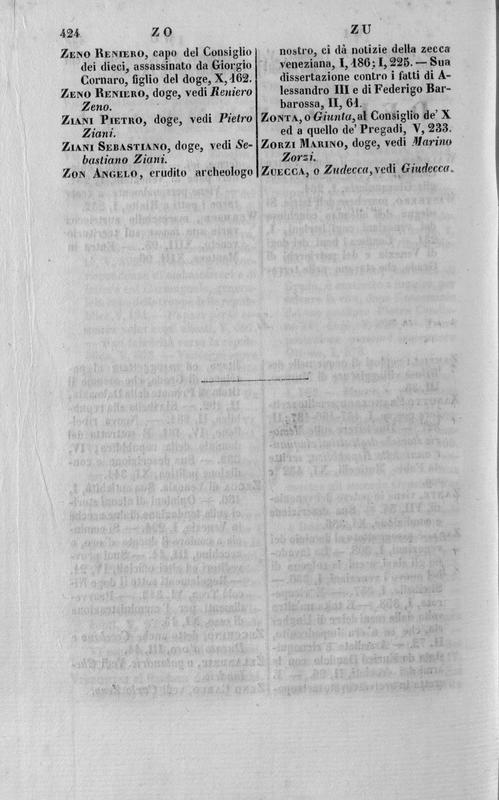 424 ZO ZU
ZENO RENIERO, capo del Consiglio
dei dieci, assassinato da Giorgio
Cornaro, figlio del doge, X, 162.
ZENO RENIERO, doge, vedi Reniero
Zeno.
ZIANI PIETRO, doge, vedi Pietro
Ziani.
ZIANI SEBASTIANO, doge, vedi Se-
bastiano Ziani.
ZON ANGELO, erudito archeologo
nostro, ci dà notizie della zecca
veneziana, I, 186; I, 225. — Sua
dissertazione contro i fatti di A-
lessandro III e di Federigo Bar-
barossa, II, 61.
ZONTA, o Giunta, al Consiglio de' X
ed a quello de' Pregadi, V, 233.
ZORZI MARINO, doge, vedi Marino
Zorzi.
ZUECCA, o Zudecca, vedi Giudecca.